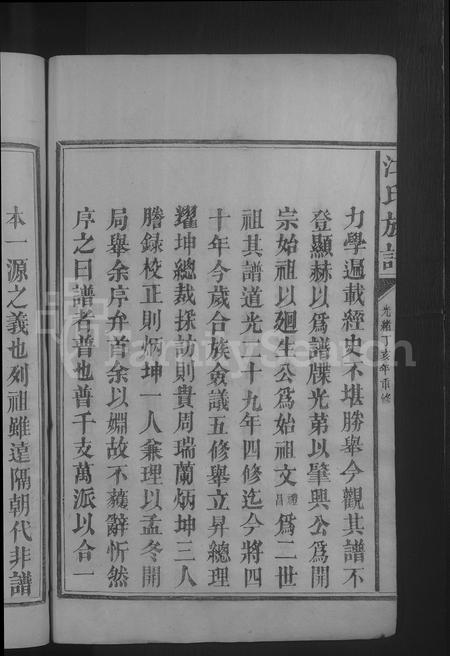 江氏族譜
光緒丁亥年重修
力學遍載經史不堪勝舉今觀其譜不
登顯赫以爲譜牒光第以肇興公爲開
宗始祖以廻生公爲始祖文禮昌爲二世
祖其譜道光二十九年四修迄今將四
十年今歲合族僉議五修舉立昇總理
耀坤總裁採訪則貴周瑞蘭炳坤三人
謄録校正則炳坤一人兼理以孟冬開
局舉余序弁首余以婣故不蕪辭忻然
序之曰譜者普也普千支萬派以合一
本一源之義也列祖雖遠隔朝代非譜
FamilySearch